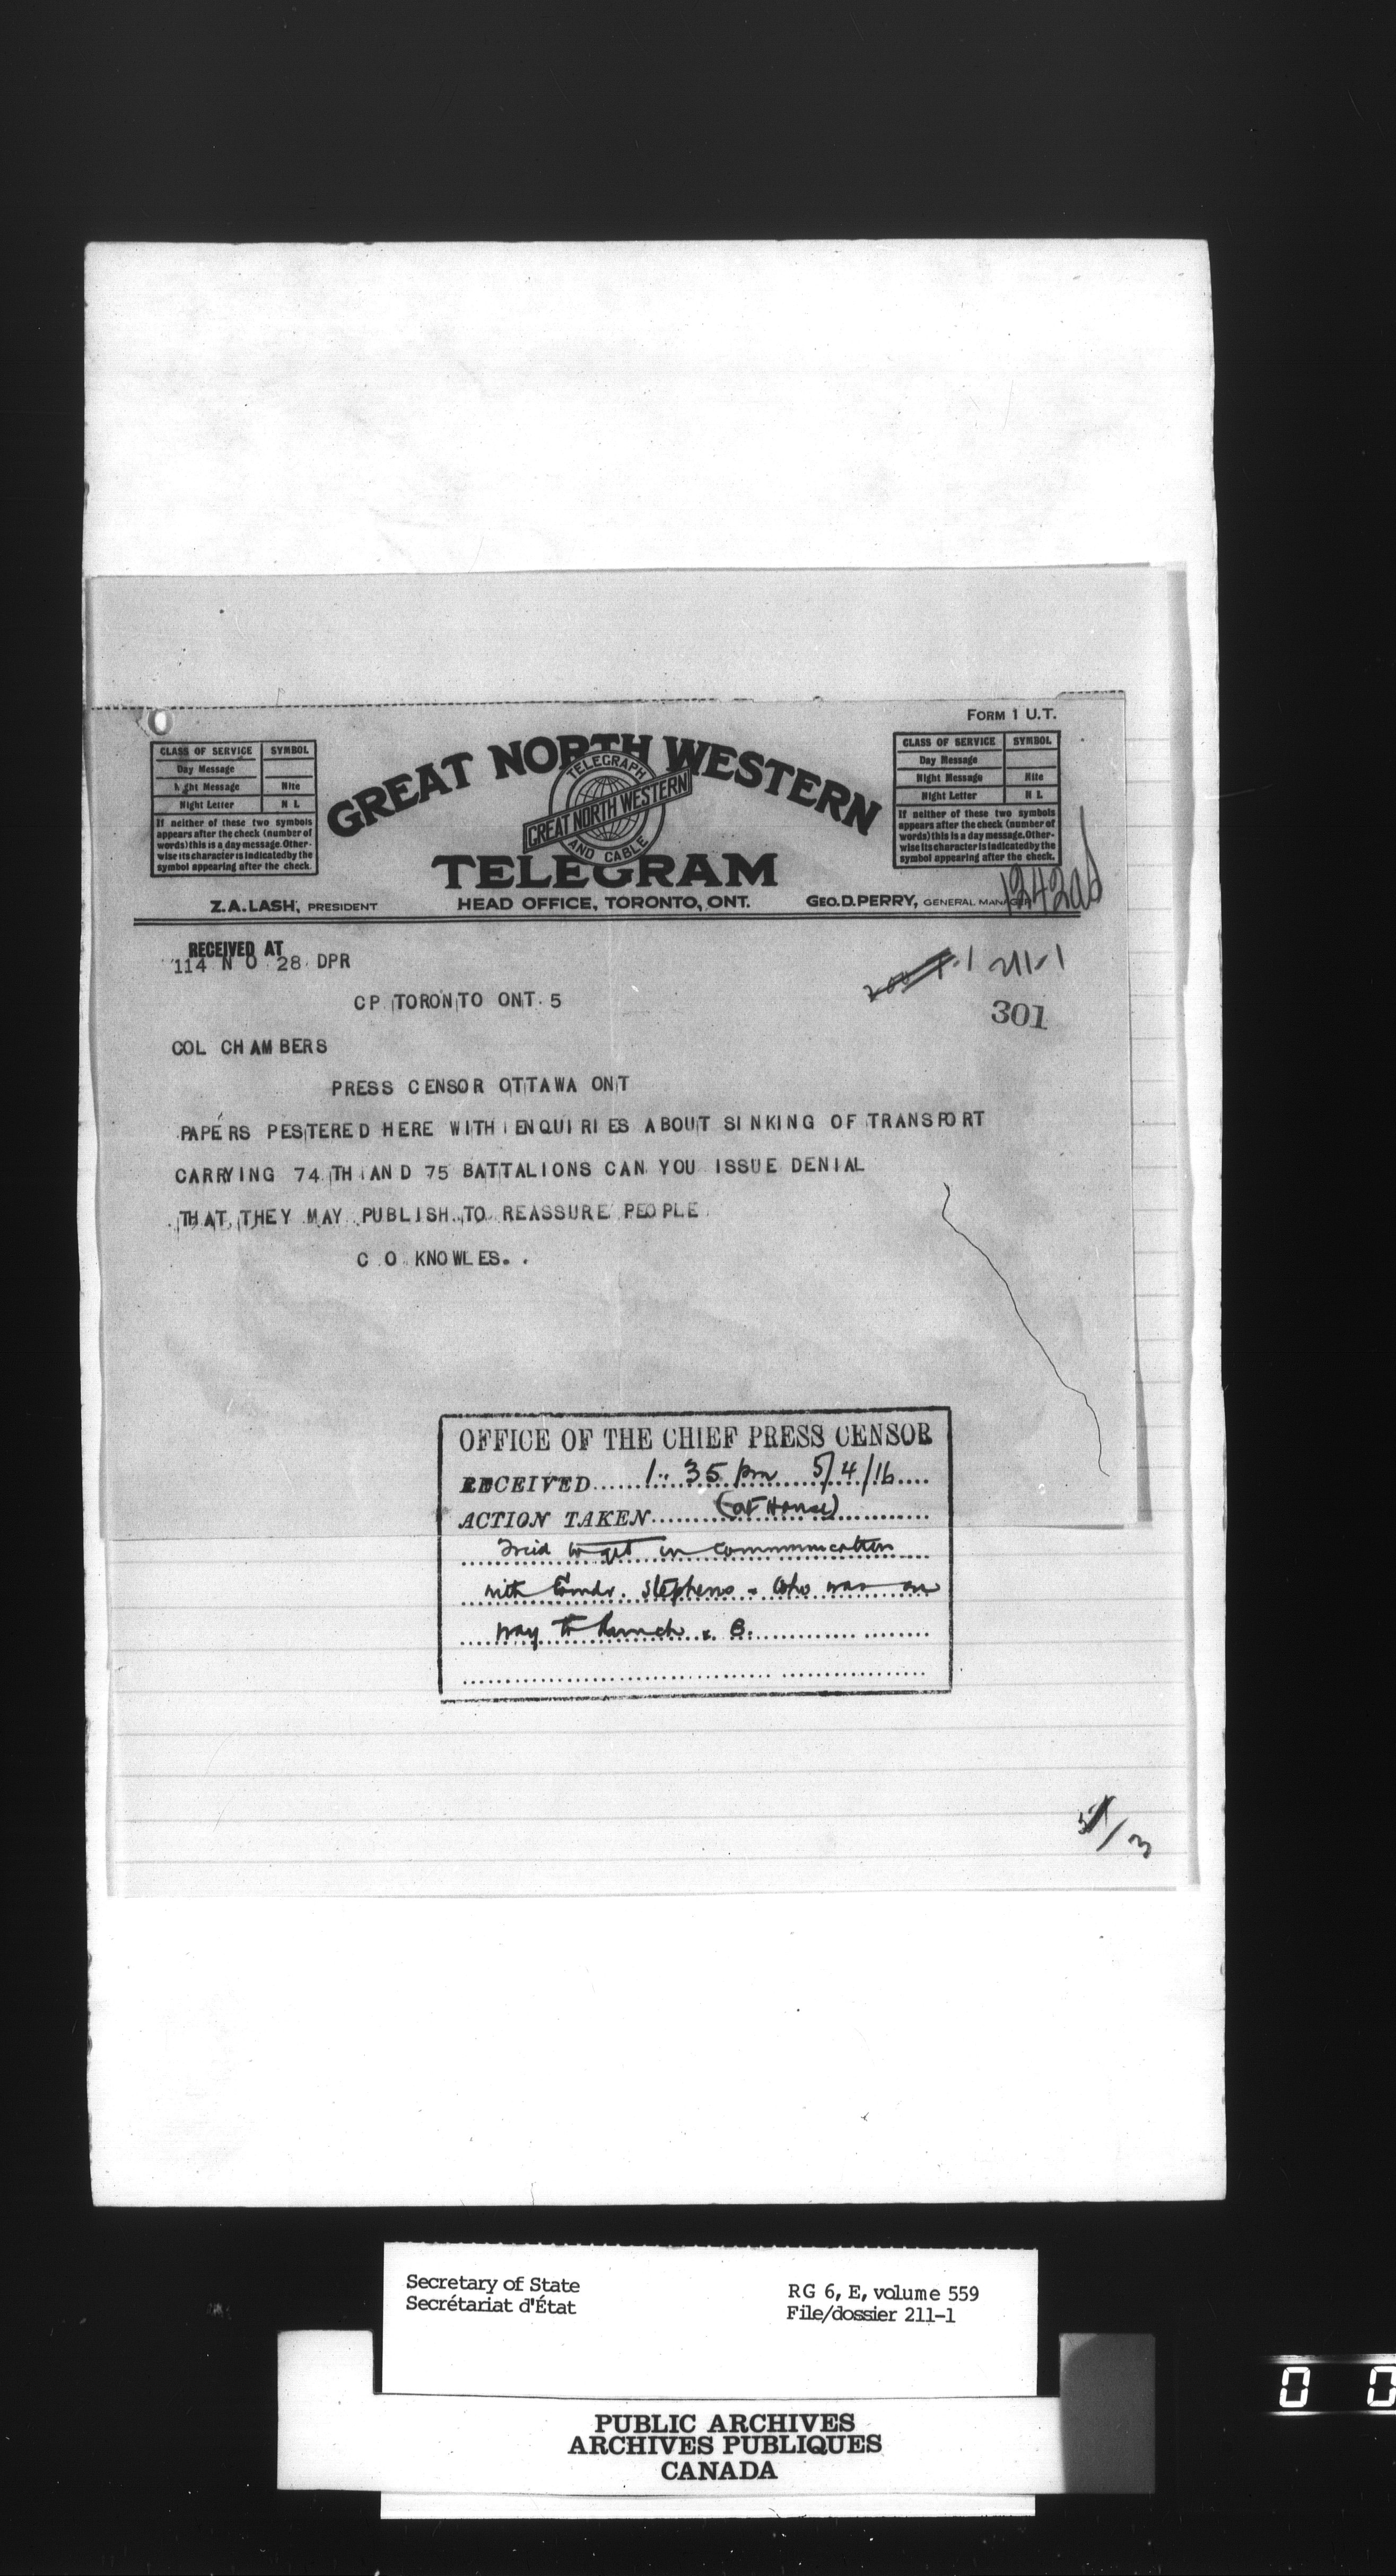 FORM 1 U.T.
CLASS OF SERVICE SYMBOL
Day Message
Night Message Nite
Night Letter N L
If neither of these two symbols
appears after the check (number of
words) this is a day message. Other-
wise its character is indicated by the
symbol appearing after the check.
GREAT NORTH WESTERN
TELEGRAPH
GREAT NORTH WESTERN
AND CABLE
TELEGRAM
CLASS OF SERVICE SYMBOL
Day Message
Night Message Nite
Night Letter N L
If neither of these two symbols
appears after the check (number of
words) this is a day message. Other-
wise its character is indicated by the
symbol appearing after the check.
Z.A. LASH, PRESIDENT HEAD OFFICE, TORONTO, ONT. GEO. D. PERRY, GENERAL MANAGER
RECEIVED AT
114 N O 28 DPR
211-1
CP TORONTO ONT 5
301
COL CHAMBERS
PRESS CENSOR OTTAWA ONT
PAPERS PESTERED HERE WITH ENQUIRIES ABOUT SINKING OF TRANSPORT
CARRYING 74 TH AND 75 BATTALIONS CAN YOU ISSUE DENIAL
THAT THEY MAY PUBLISH TO REASSURE PEOPLE
C O KNOWLES. .
OFFICE OF THE CHIEF PRESS CENSOR
RECEIVED 1.35 pm 5/4/16
ACTION TAKEN (at House)
Tried to get in communication
with Comdr. Stephens - who was on
way to lunch. B.
Secretary of State
Secrétariat d'État
RG 6, E, volume 559
File/dossier 211-1
PUBLIC ARCHIVES
ARCHIVES PUBLIQUES
CANADA
0 0